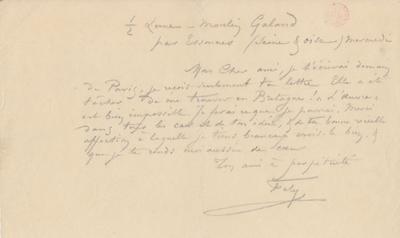 ½ Lune - Moulin Galand
par Essonnes (Seine & Oise) Mercredi
Mon Cher ami, je t'écrirai demain
de Paris, je reçois seulement ta lettre Elle a été
De me trouver en Bretagne!
est bien impossible Je Merci
dans tous les cas & de ton & de ta bonne vieille
affection à laquelle je tiens beaucoup crois-le bien, &
que je te rends
Ton ami à perpétuité
Faly